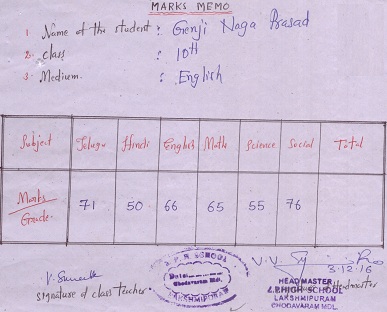 MARKS MEMO
1 Name of the student : Genji Naga Prasad
2. class : 10th
3. Medium. : English
Subject Telugu Hindi English Math Science Social Total
Marks/Grade. 71 50 66 65 55 76
HIGH SCHOOL
Date
Chodavaram Mdl.
LAKSHMIPURAM
signature of class teacher.
3.12.16
HEADMASTER
HIGH SCHOOL
LAKSHMIPURAM
CHODAVARAM MDL.